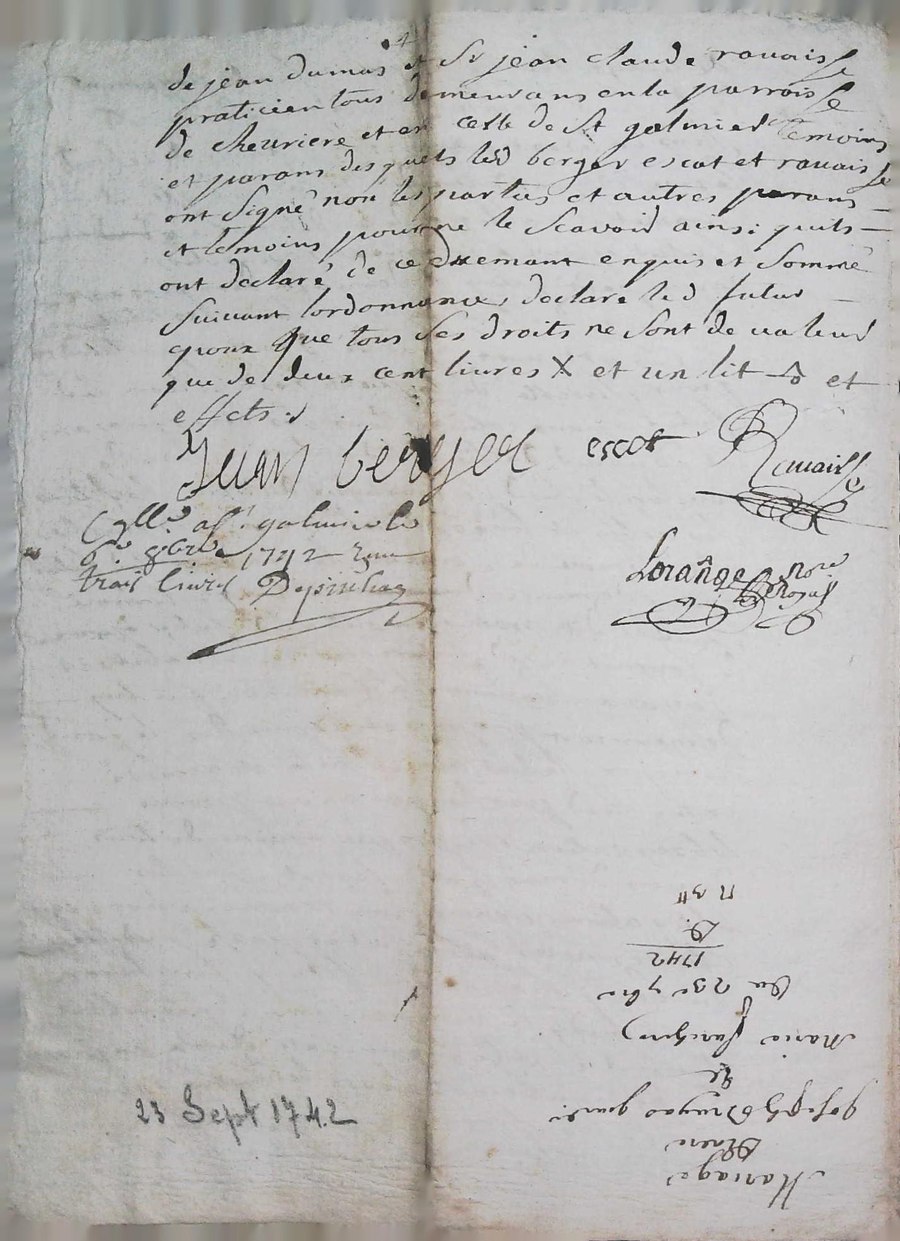 de jean dumas et Sr jean claude rauaisse
praticien tous demeurans en la parroisse
de cheuriere et en celle de St galmier temoins
et parans desquels led berger escot et rauaisse
ont signé non les partus et autres parans
et temoins pour ne le scavoir ainsi quils
ont declaré de ce duemant enquis et sommé
suivant lordonnance, declare led futur
epoux que tous ses droits ne sont de valeur
que de deux cent livres X et un lit et
effets
Jean berger escot Rauaisse
Cllé a St galmier le
6e 8bre 1742
trois livres
Lorange nore
Royal
23 Sept 1742
Mariage
Entre
joseph
Et
Marie
Du 23e 7bre
1742